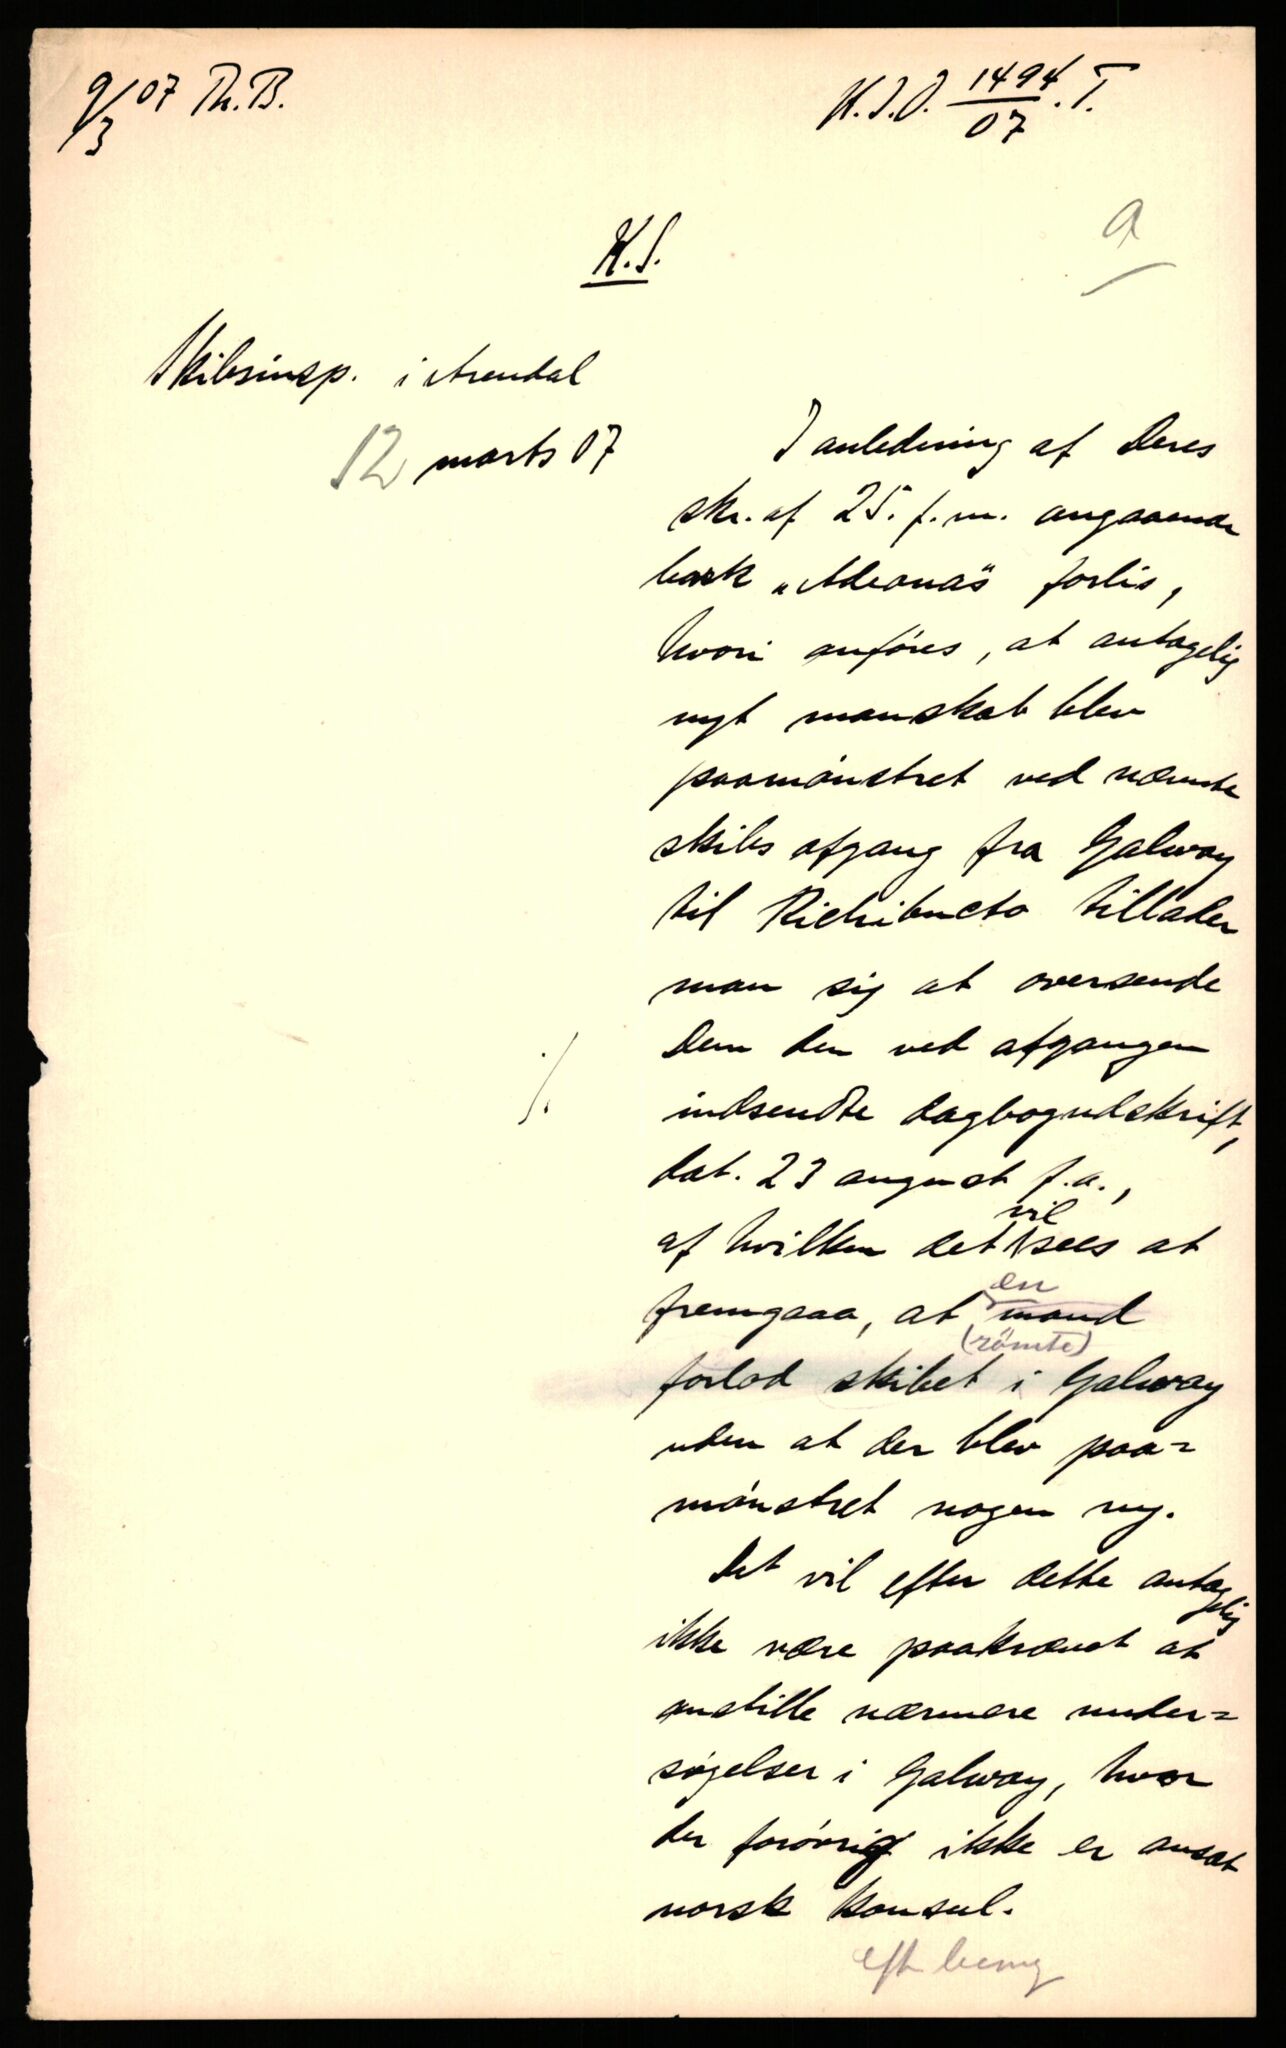 9/3 07 Th. B.
H.I.O. 1494/07 . T.
a
H.S.
Skibsinsp. i Arendal
12 marts 07
I anledning af Deres
skr. af 25. f.m. angaaende
bark „Adeonas" forlis,
hvori anføres, at antagelig
nyt manskab blev
paamønstret ved nævnte
skibs afgang fra Galway
til Richibucto tillader
man sig at oversende
Dem den ved afgangen
./.
indsendte dagbogudskrift,
dat. 23 august f.a.,
vil
af hvilken det sees at
en
fremgaaa, at mand
(römte)
forlod skibet i Galway
uden at der blev paa=
mønstret nogen ny.
Det vil efter dette antagelig
ikke være paakrævet at
anstille nærmere under=
søgelser i Galway, hvor
der forøvrig ikke er ansat
norsk konsul.